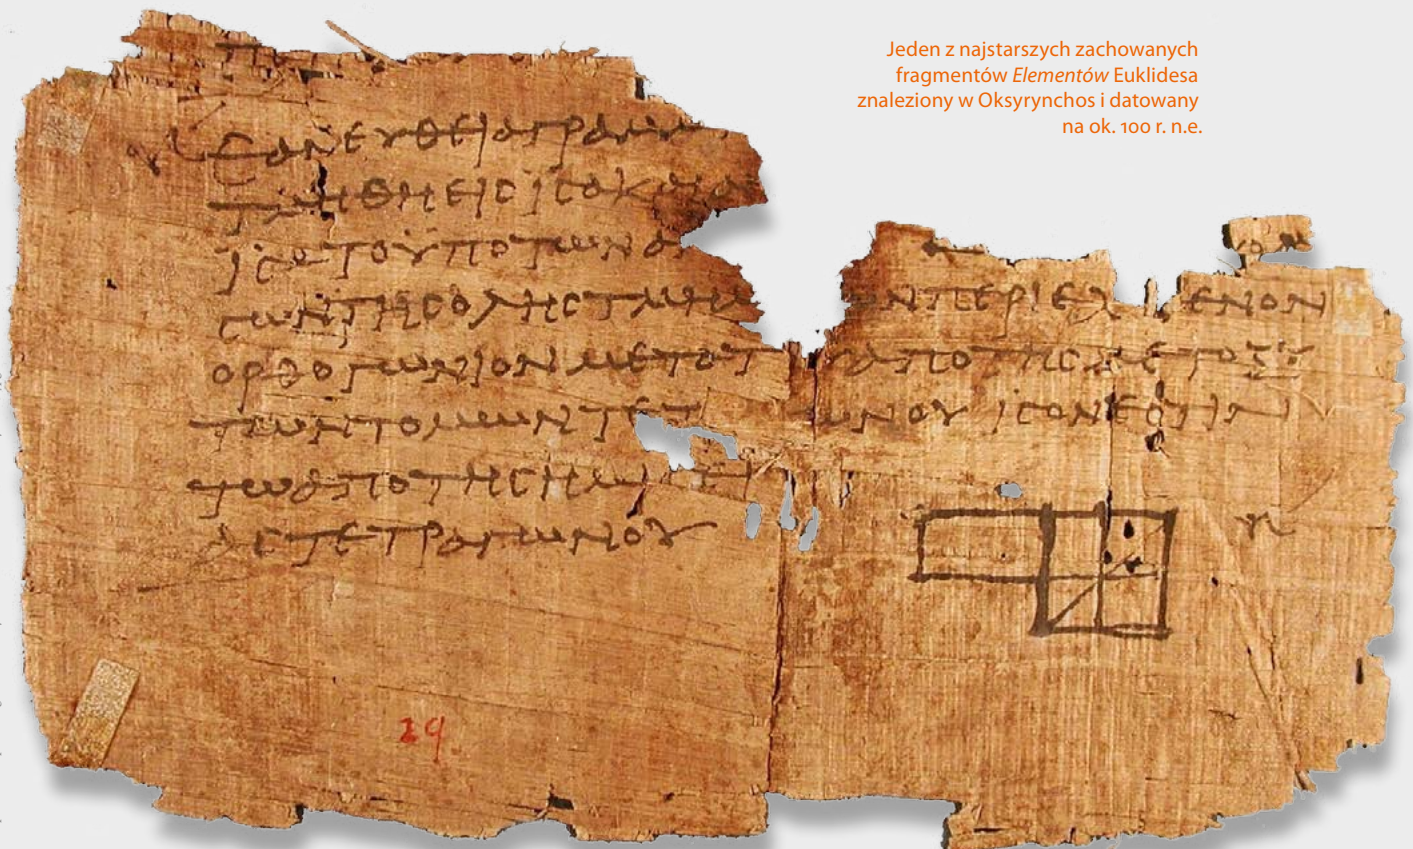 Jeden z najstarszych zachowanych
fragmentów Elementów Euklidesa
znaleziony w Oksyrynchos i datowany
na ok. 100 r. n.e.
ΕΑΝΕΥΘΕΙΑΓΡΑΜΜ
ΤΜΗΘΗΕΙϹΙϹΑΚΑΙΑ
ΙϹΑΤΟΫΠΟΤΩΝΑ
ϹΩΝΤΗϹΟΛΗϹΤΜΗΜ ΩΝΠΕΡΙΕΧ ΜΕΝΟΝ
ΟΡΘΟΓΩΝΙΟΝΜΕΤΟΤ ΑΠΟΤΗϹΜΕΤΟΞΥ
ΤΩΝΤΟΜΩΝΤΕΤ ΩΝΟΥ ΙϹΟΝΕϹΤΙΝ
ΤΩΑΠΟΤΗϹΗΜΙϹΕΙ
ΑϹΤΕΤΡΑΓΩΝΟΥ
29.